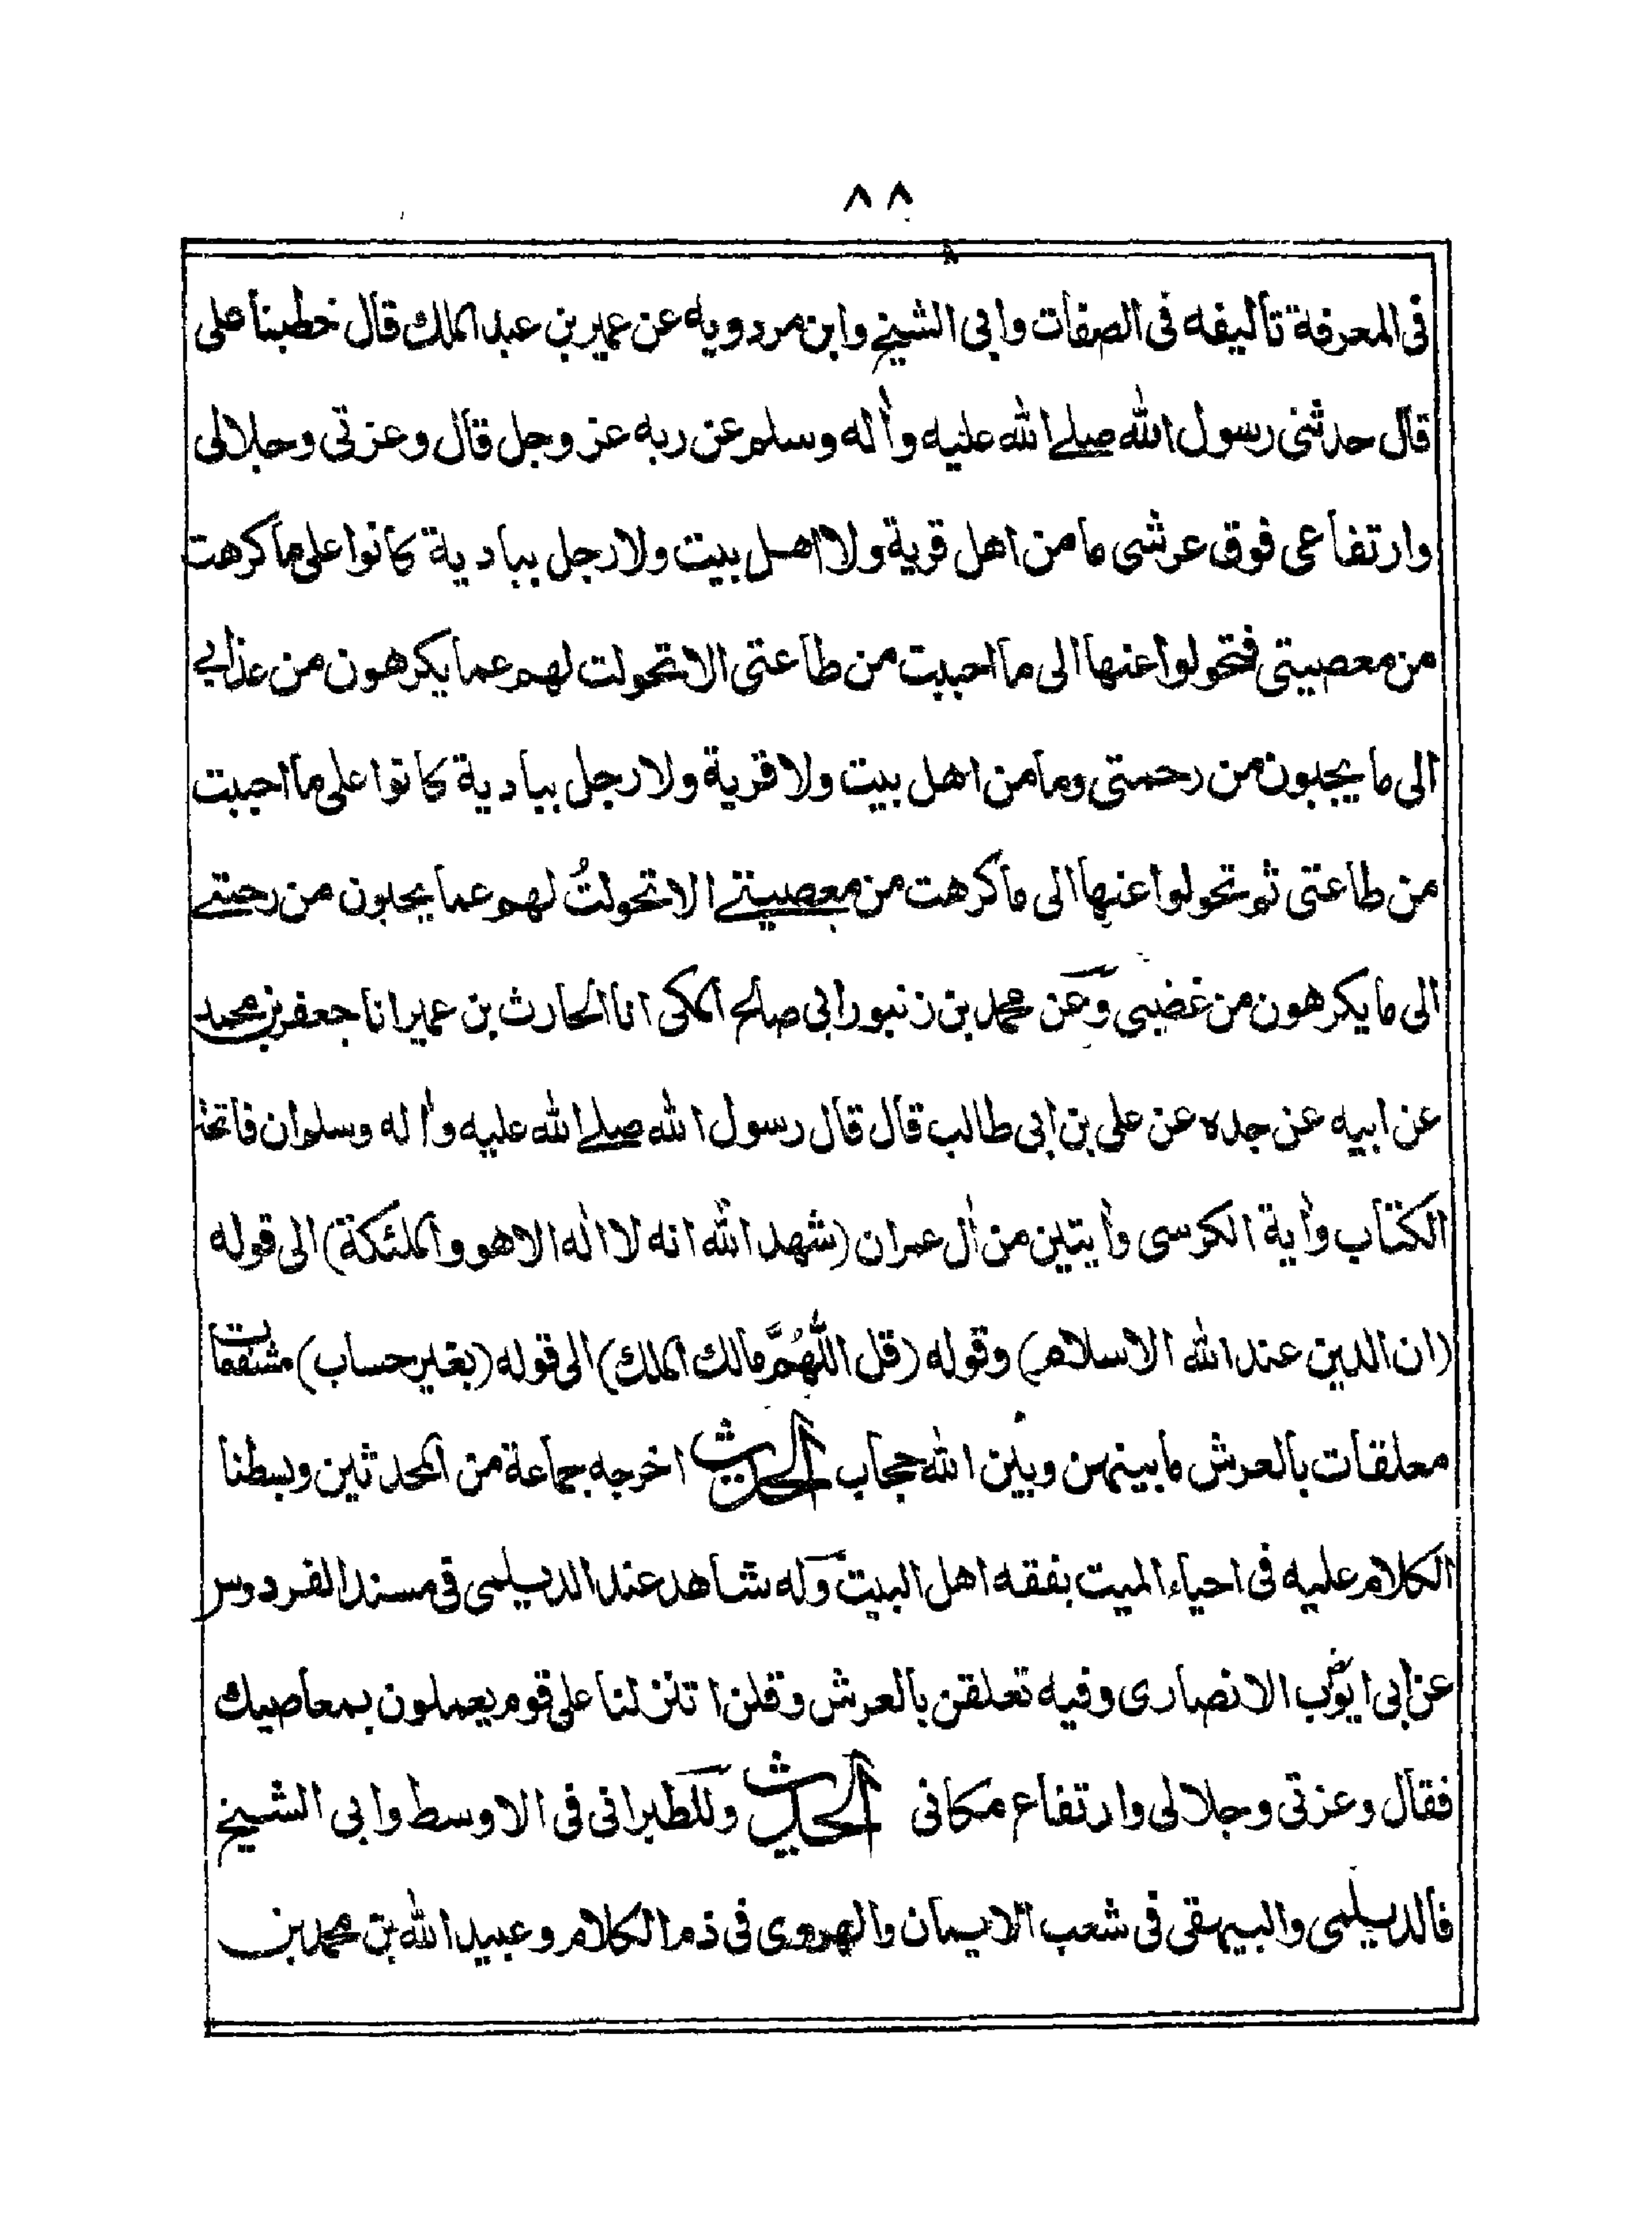 ٨٨
فى المعرفة تأليفه فى الصفات وابى الشيخ وابن مردويه عن عمير بن عبد الملك قال خطبنا على
قال حدثنى رسول الله صلى الله عليه وأله وسلم عن ربه عز وجل قال وعزتى وجلالى
وارتفاعى فوق عرشى ما من اهل قرية ولا اهل بيت ولا رجل ببادية كانوا على ما كرهت
من معصيتى فتحولوا عنها الى ما احببت من طاعتى الا تحولت لهم عما يكرهون من عذابى
الى ما يحبون من رحمتى وما من اهل بيت ولا قرية ولا رجل ببادية كانوا على ما احببت
من طاعتى ثم تحولوا عنها الى ما كرهت من معصيتى الا تحولتُ لهم عما يحبون من رحمتى
الى ما يكرهون من غضبى وعن محمد بن زنبور ابى صالح المكى انا الحارث بن عمير انا جعفر بن محمد
عن ابيه عن جده عن على بن ابى طالب قال قال رسول الله صلى الله عليه وأله وسلم ان فاتحة
الكتاب وأية الكرسى وأيتين من أل عمران (شهد الله انه لا اله الا هو والملئكة) الى قوله
(ان الدين عند الله الاسلام) وقوله (قل اللهُمَّ مالك الملك) الى قوله (بغير حساب) مشفعات
معلقات بالعرش ما بينهن وبين الله حجاب الحديث اخرجه جماعة من المحدثين وبسطنا
الكلام عليه فى احياء الميت بفقه اهل البيت وله شاهد عند الديلمى فى مسند الفردوس
عن ابى ايوب الانصارى وفيه تعلقن بالعرش وقلن اتنزلنا على قوم يعملون بمعاصيك
فقال وعزتى وجلالى وارتفاع مكانى الحديث وللطبرانى فى الاوسط وابى الشيخ
فالديلمى والبيهقى فى شعب الايمان والهروى فى ذم الكلام وعبيد الله بن محمد بن